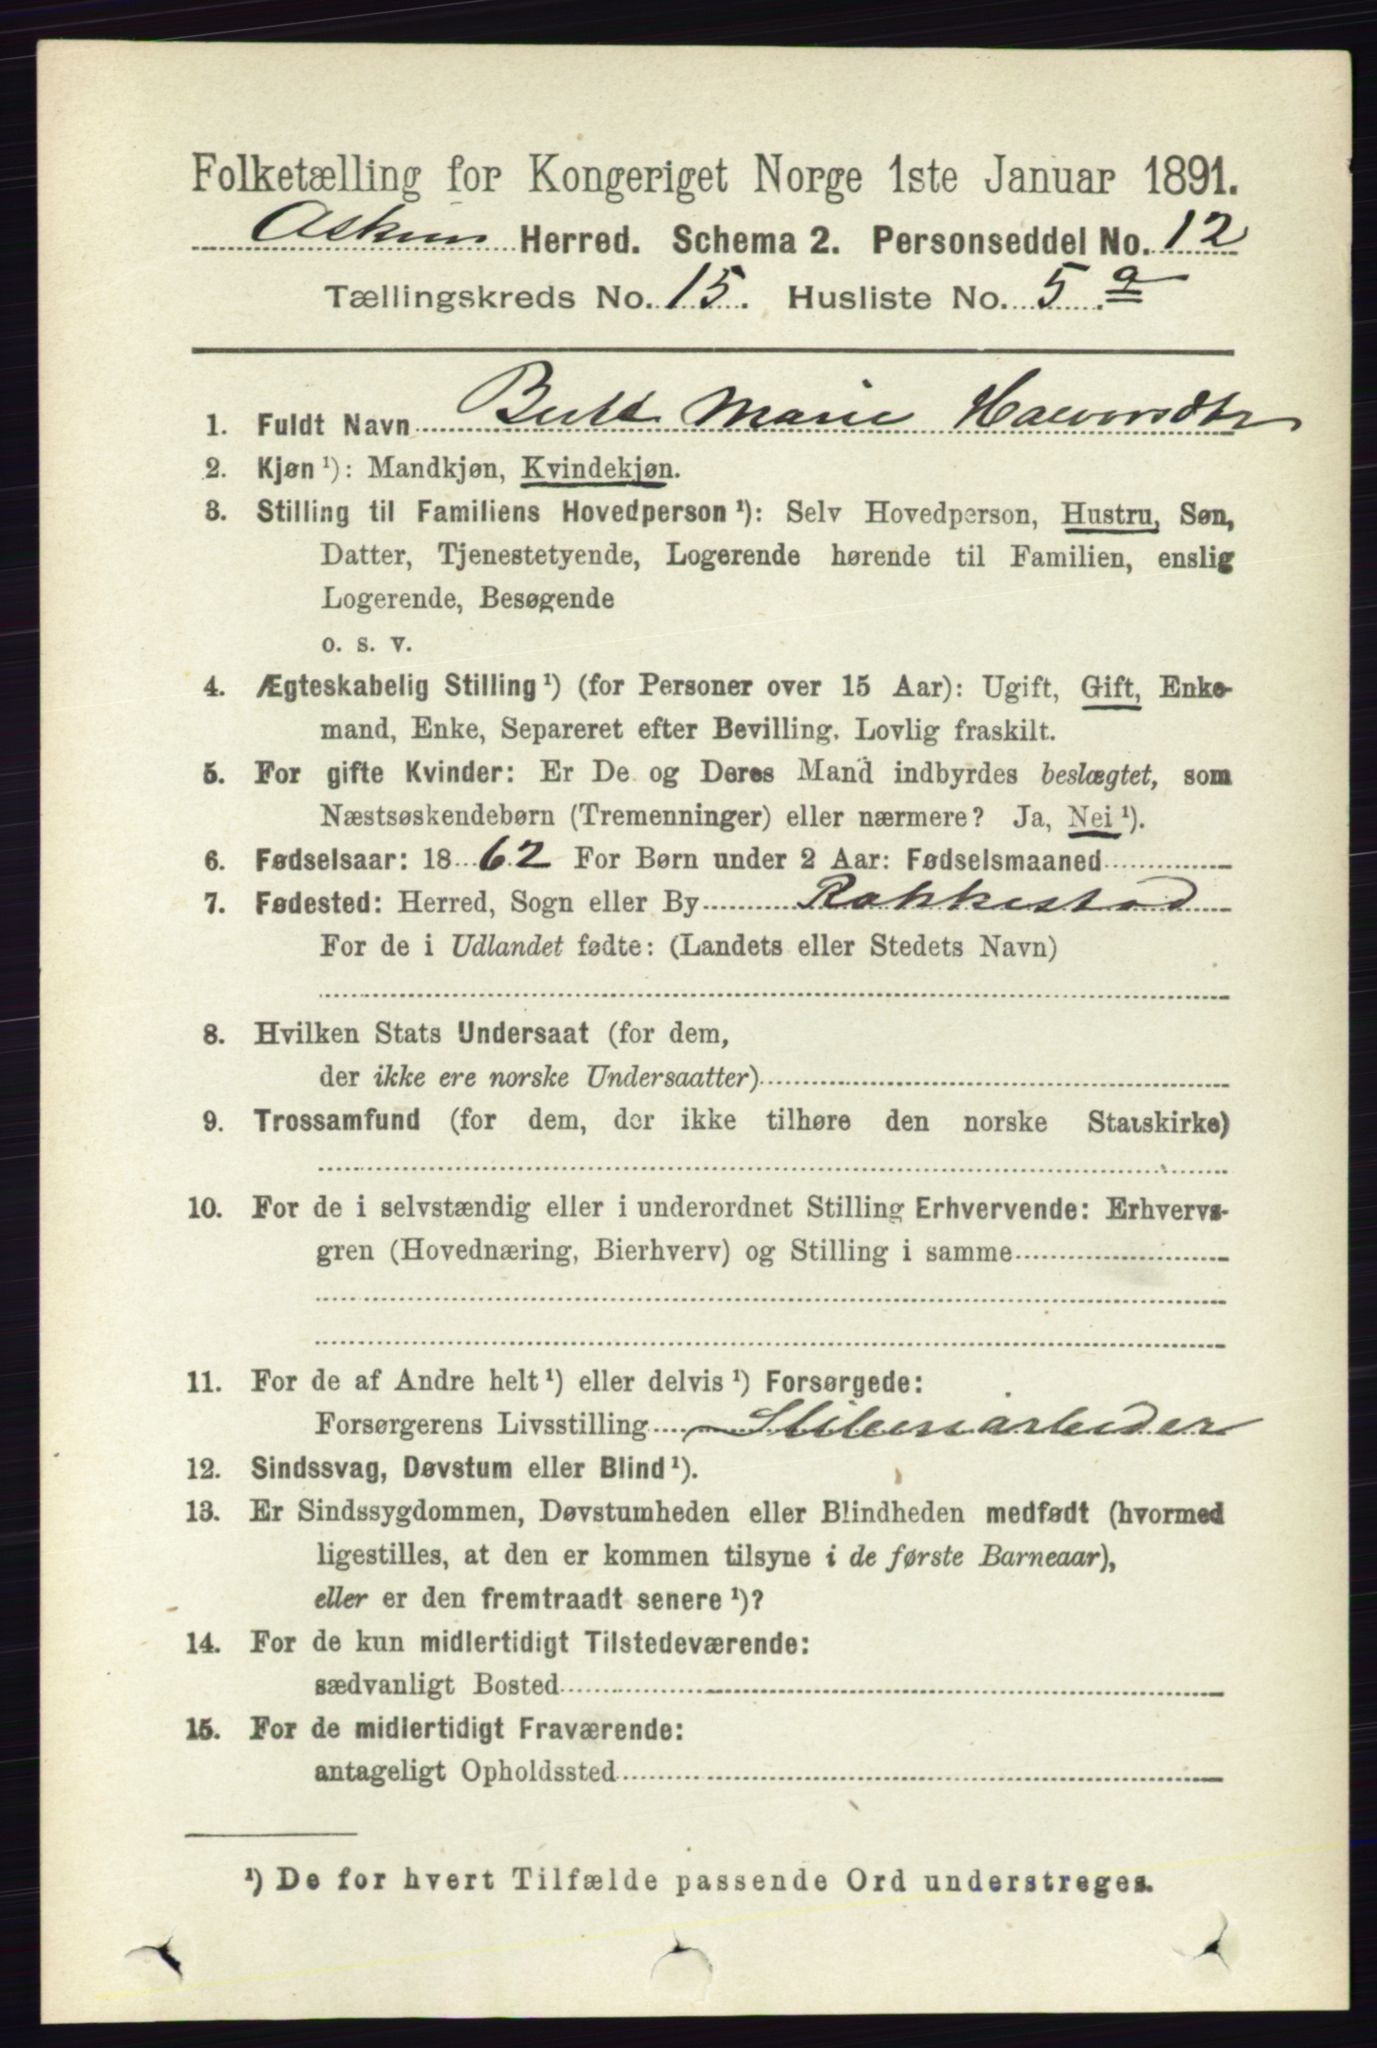 Folketælling for Kongeriget Norge 1ste Januar 1891.
Askim Herred. Schema 2. Personseddel No. 12
Tællingskreds No. 15. Husliste No. 5 a
1. Fuldt Navn Marie Halvorsdtr
2. Kjøn ¹): Mandkjøn, Kvindekjøn.
3. Stilling til Familiens Hovedperson ¹): Selv Hovedperson, Hustru, Søn,
Datter, Tjenestetyende, Logerende hørende til Familien, enslig
Logerende, Besøgende
o. s. v.
4. Ægteskabelig Stilling ¹) (for Personer over 15 Aar): Ugift, Gift, Enke-
mand, Enke, Separeret efter Bevilling. Lovlig fraskilt.
5. For gifte Kvinder: Er De og Deres Mand indbyrdes beslægtet, som
Næstsøskendebørn (Tremenninger) eller nærmere? Ja, Nei ¹).
6. Fødselsaar: 1862 For Børn under 2 Aar: Fødselsmaaned
7. Fødested: Herred, Sogn eller By Rakkestad
For de i Udlandet fødte: (Landets eller Stedets Navn)
8. Hvilken Stats Undersaat (for dem,
der ikke ere norske Undersaatter)
9. Trossamfund (for dem, der ikke tilhøre den norske Statskirke)
10. For de i selvstændig eller i underordnet Stilling Erhvervende: Erhvervs-
gren (Hovednæring, Bierhverv) og Stilling i samme
11. For de af Andre helt ¹) eller delvis ¹) Forsørgede:
Forsørgerens Livsstilling Sliberiarbeider
12. Sindssvag, Døvstum eller Blind ¹).
13. Er Sindssygdommen, Døvstumheden eller Blindheden medfødt (hvormed
ligestilles, at den er kommen tilsyne i de første Barneaar),
eller er den fremtraadt senere ¹)?
14. For de kun midlertidigt Tilstedeværende:
sædvanligt Bosted
15. For de midlertidigt Fraværende:
antageligt Opholdssted
¹) De for hvert Tilfælde passende Ord understreges.